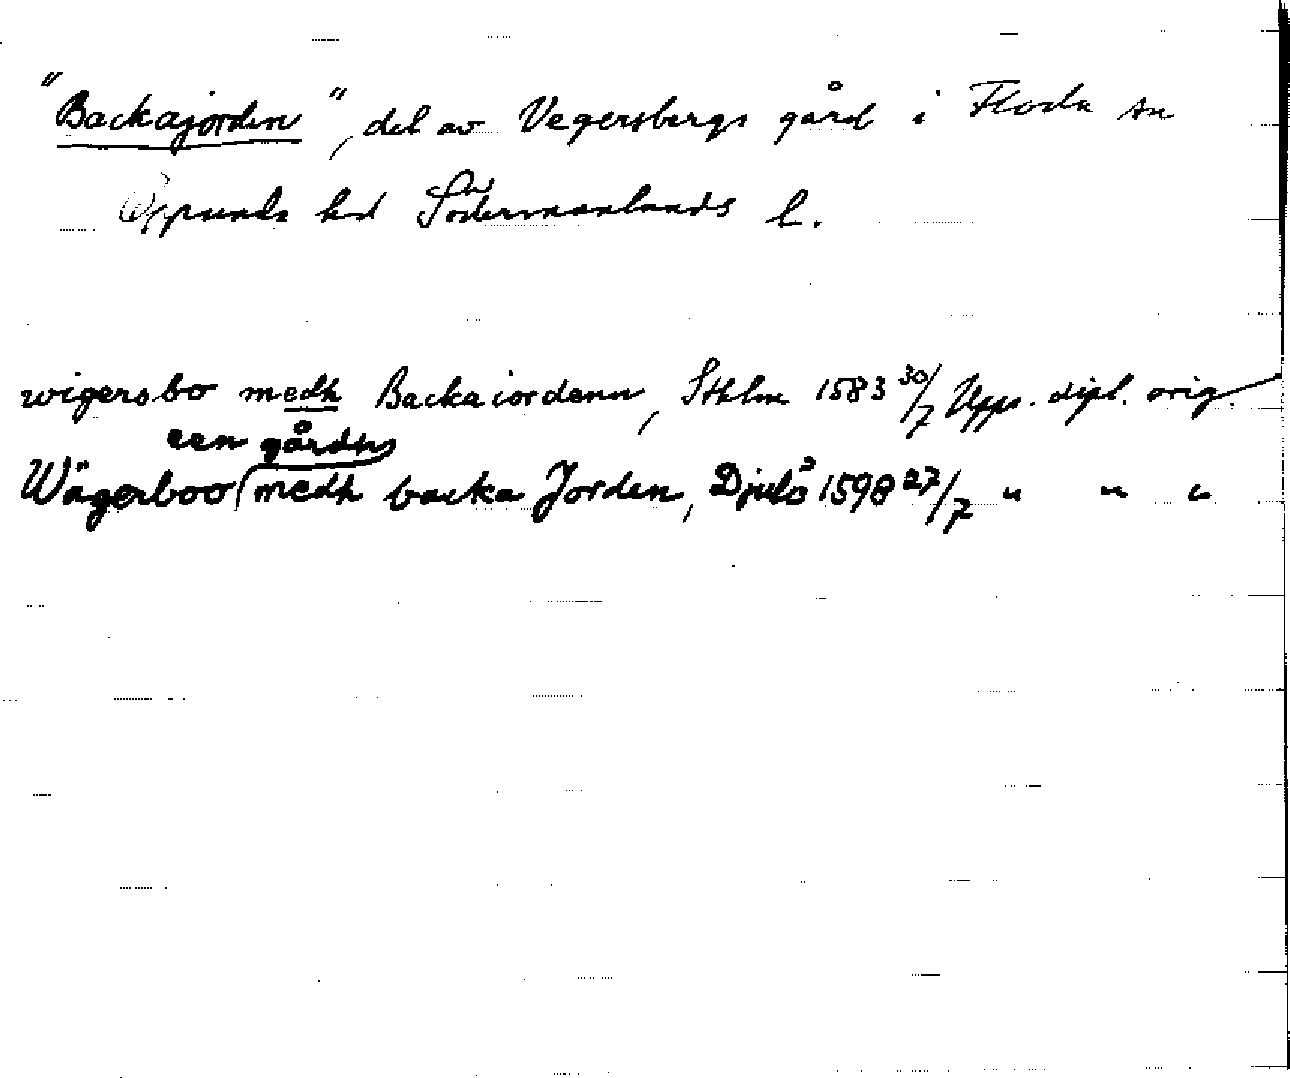 "Backajorden", del av Vegersbergs gård i Floda sn
Oppunda hd Södermanlands l.
wigersbo medh Backaiordenn, Sthlm 1583 30/7 Upps. dipl. orig.
een gårdh
Wägerboo medh backa Jorden, Djulö 1598 27/7 " " "